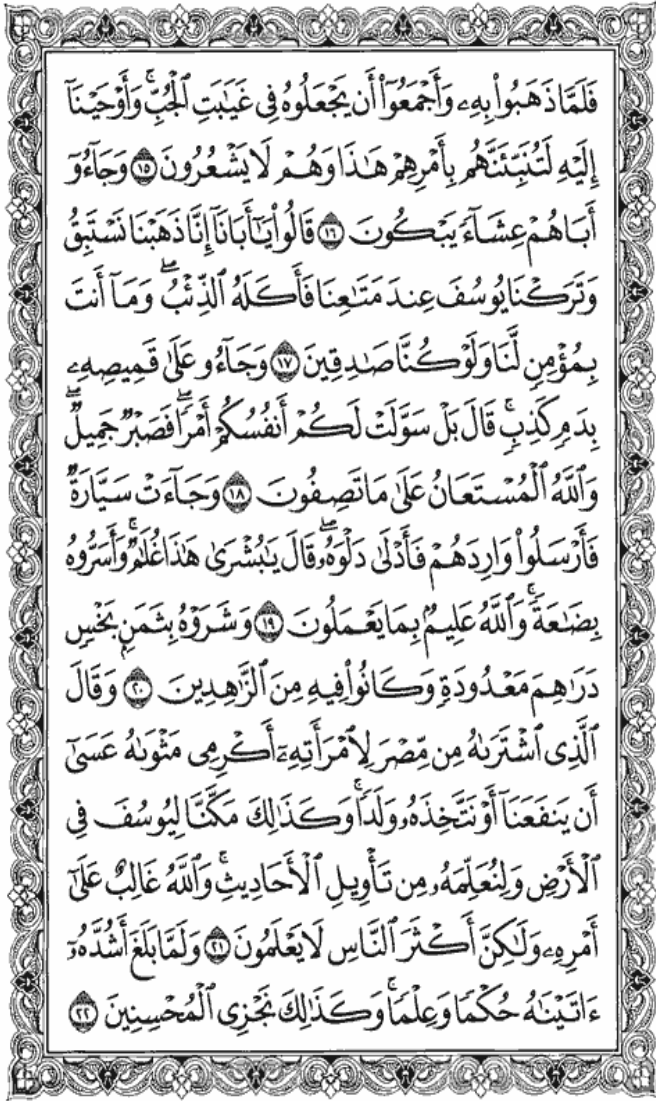 فَلَمَّا ذَهَبُوا۟ بِهِۦ وَأَجْمَعُوٓا۟ أَن يَجْعَلُوهُ فِى غَيَٰبَتِ ٱلْجُبِّ ۚ وَأَوْحَيْنَآ
إِلَيْهِ لَتُنَبِّئَنَّهُم بِأَمْرِهِمْ هَٰذَا وَهُمْ لَا يَشْعُرُونَ ١٥ وَجَآءُوٓ
أَبَاهُمْ عِشَآءً يَبْكُونَ ١٦ قَالُوا۟ يَٰٓأَبَانَآ إِنَّا ذَهَبْنَا نَسْتَبِقُ
وَتَرَكْنَا يُوسُفَ عِندَ مَتَٰعِنَا فَأَكَلَهُ ٱلذِّئْبُ ۖ وَمَآ أَنتَ
بِمُؤْمِنٍ لَّنَا وَلَوْ كُنَّا صَٰدِقِينَ ١٧ وَجَآءُو عَلَىٰ قَمِيصِهِۦ
بِدَمٍ كَذِبٍ ۚ قَالَ بَلْ سَوَّلَتْ لَكُمْ أَنفُسُكُمْ أَمْرًا ۖ فَصَبْرٌ جَمِيلٌ ۖ
وَٱللَّهُ ٱلْمُسْتَعَانُ عَلَىٰ مَا تَصِفُونَ ١٨ وَجَآءَتْ سَيَّارَةٌ
فَأَرْسَلُوا۟ وَارِدَهُمْ فَأَدْلَىٰ دَلْوَهُۥ ۖ قَالَ يَٰبُشْرَىٰ هَٰذَا غُلَٰمٌ ۚ وَأَسَرُّوهُ
بِضَٰعَةً ۚ وَٱللَّهُ عَلِيمٌۢ بِمَا يَعْمَلُونَ ١٩ وَشَرَوْهُ بِثَمَنٍۭ بَخْسٍ
دَرَٰهِمَ مَعْدُودَةٍ وَكَانُوا۟ فِيهِ مِنَ ٱلزَّٰهِدِينَ ٢٠ وَقَالَ
ٱلَّذِى ٱشْتَرَىٰهُ مِن مِّصْرَ لِٱمْرَأَتِهِۦٓ أَكْرِمِى مَثْوَىٰهُ عَسَىٰٓ
أَن يَنفَعَنَآ أَوْ نَتَّخِذَهُۥ وَلَدًا ۚ وَكَذَٰلِكَ مَكَّنَّا لِيُوسُفَ فِى
ٱلْأَرْضِ وَلِنُعَلِّمَهُۥ مِن تَأْوِيلِ ٱلْأَحَادِيثِ ۚ وَٱللَّهُ غَالِبٌ عَلَىٰٓ
أَمْرِهِۦ وَلَٰكِنَّ أَكْثَرَ ٱلنَّاسِ لَا يَعْلَمُونَ ٢١ وَلَمَّا بَلَغَ أَشُدَّهُۥٓ
ءَاتَيْنَٰهُ حُكْمًا وَعِلْمًا ۚ وَكَذَٰلِكَ نَجْزِى ٱلْمُحْسِنِينَ ٢٢